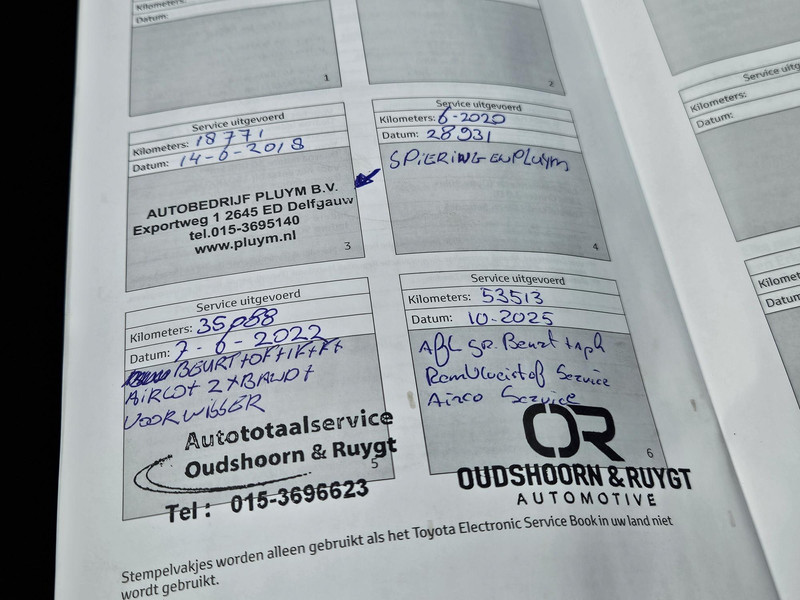 Kilometers:
Datum:
1
2
Service uitgevoerd
Kilometers: 18771
Datum: 14-6-2018
AUTOBEDRIJF PLUYM B.V.
Exportweg 1 2645 ED Delfgauw
tel.015-3695140
www.pluym.nl
3
Service uitgevoerd
Kilometers: 6-2020
Datum: 28931
SPIERING EN PLUYM
4
Service uitgevoerd
Kilometers:
Datum: 7-6-2022
BEURT+OF+IF+FF+
AIRCO+ 2XBAND+
VOORWISSER
Autototaalservice
Oudshoorn & Ruygt
Tel : 015-3696623
5
Service uitgevoerd
Kilometers: 53513
Datum: 10-2025
Afl gr. Beurt + apk
Remvloeistof Service
Airco Service
OR
OUDSHOORN & RUYGT
AUTOMOTIVE
6
Stempelvakjes worden alleen gebruikt als het Toyota Electronic Service Book in uw land niet
wordt gebruikt.
Service uitg
Kilometers:
Datum:
Kilomete
Datum: